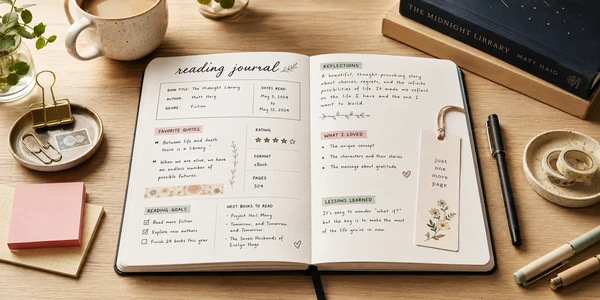 reading journal
BOOK TITLE: The Midnight Library
AUTHOR: Matt Haig
GENRE: Fiction
DATES READ:
May 5, 2024
to
May 12, 2024
FAVORITE QUOTES
"Between life and death
there is a library."
"When we are alive, we have
an endless number of
possible futures.
RATING
FORMAT
eBook
PAGES
304
READING GOALS
Read more fiction
Explore new authors
Finish 24 books this year
NEXT BOOKS TO READ
• Project Hail Mary
• Tomorrow, and Tomorrow,
and Tomorrow
• The Seven Husbands of
Evelyn Hugo
REFLECTIONS
A beautiful, thought-provoking story
about choices, regrets, and the infinite
possibilities of life. It made me reflect
on the life I have and the one I
want to build.
WHAT I LOVED
• The unique concept
• The characters and their stories
• The message about gratitude
LESSONS LEARNED
It's easy to wonder "what if?"
but the key is to make the most
of the life you're in now.
just
one
more
page
THE MIDNIGHT LIBRARY MATT HAIG